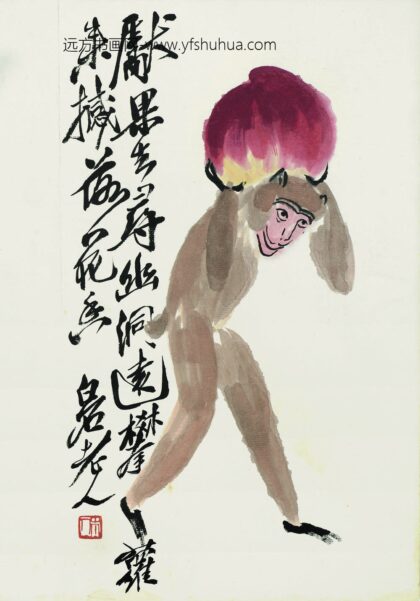 远方书画网 www.yfshuhua.com
獻果去尋幽洞遠攀蘿
來撼落花香
白石老人